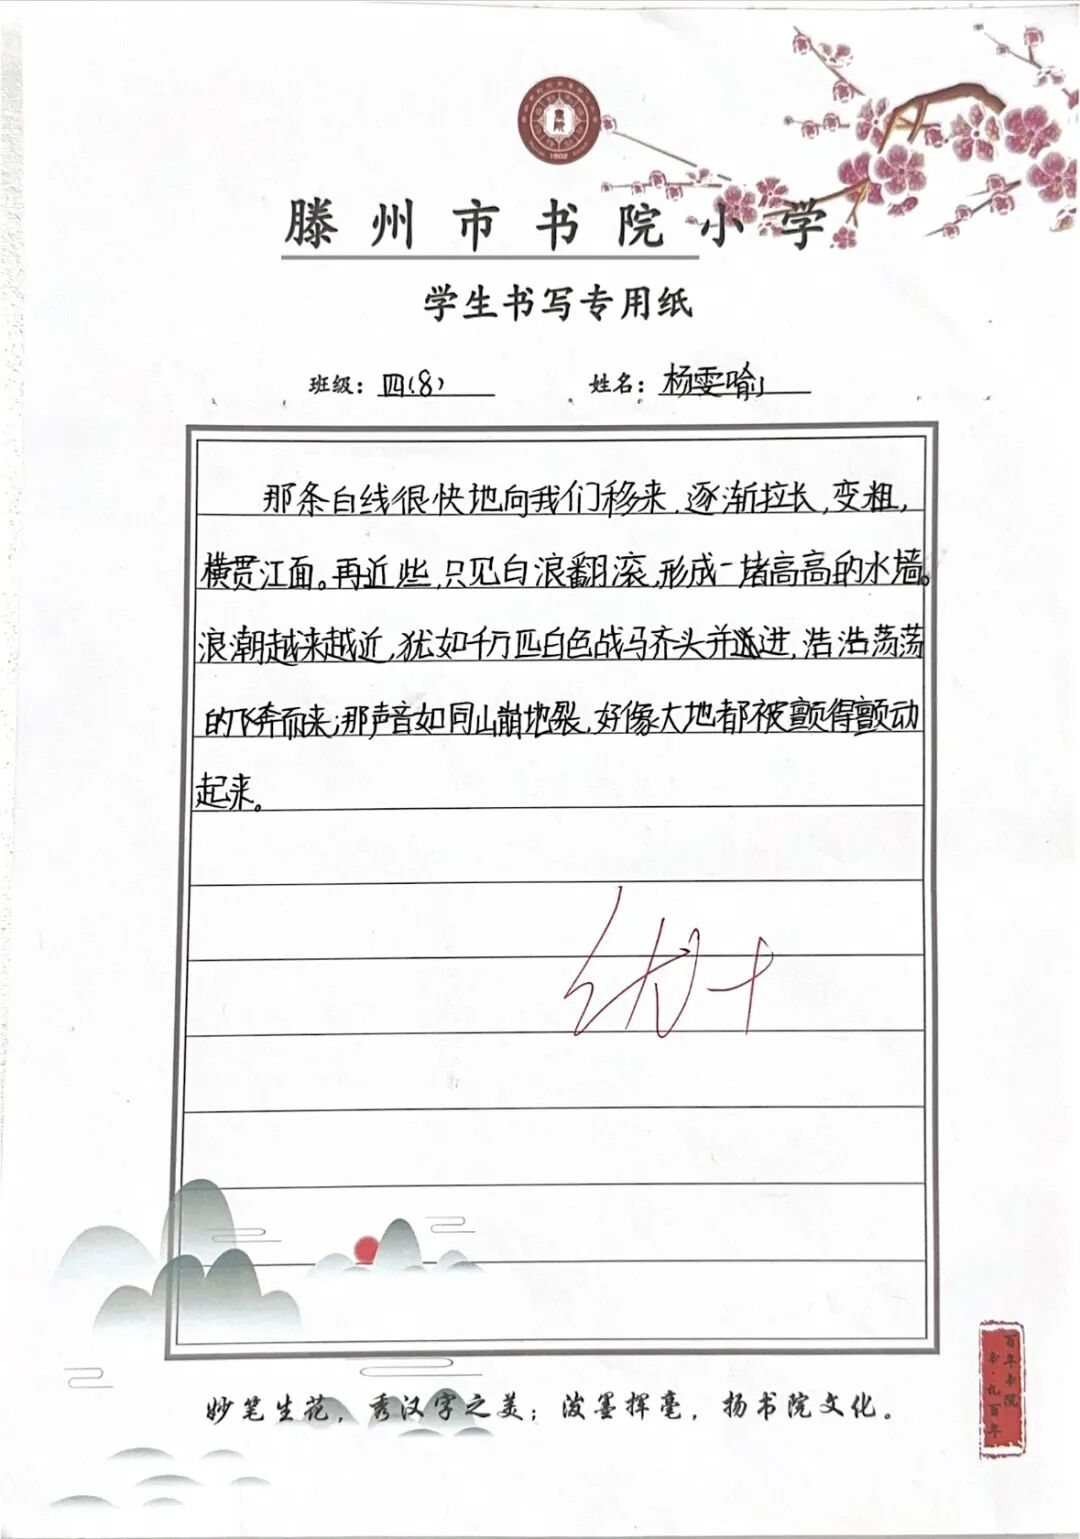 1902
滕州市书院小学
学生书写专用纸
班级：四(8) 姓名：杨雯喻
那条白线很快地向我们移来，逐渐拉长，变粗，
横贯江面。再近些，只见白浪翻滚，形成一堵高高的水墙。
浪潮越来越近，犹如千万匹白色战马齐头并进，浩浩荡荡
的飞奔而来；那声音如同山崩地裂，好像大地都被颤得颤动
起来。
优+
妙笔生花，秀汉字之美；泼墨挥毫，扬书院文化。
百年书院
书·礼百年